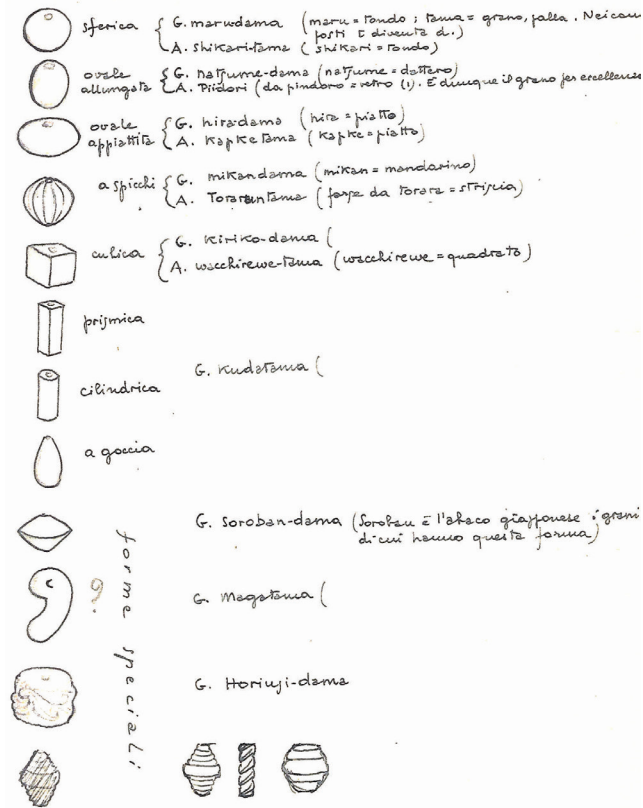 sferica { G. marudama (maru = tondo ; tama = grano, palla. Nei com
posti t diventa d.)
A. Shikari-tama ( shikari = tondo)
ovale allungata { G. natsume-dama (natsume = dattero)
A. Piidori ( da pindoro = vetro (1). È dunque il grano per eccellenza
ovale appiattita { G. hira-dama (hira = piatto)
A. Kapketama (kapke = piatto)
a spicchi { G. mikandama (mikan = mandarino)
A. Toraruntama (forse da torara = striscia)
cubica { G. Kiriko-dama (
A. wacchirewe-tama (wacchirewe = quadrato)
prismica
G. Kudatama (
cilindrica
a goccia
G. Soroban-dama (Soroban è l'abaco giapponese i grani
di cui hanno questa forma)
G. Magatama (
G. Horiuji-dama
forme speciali